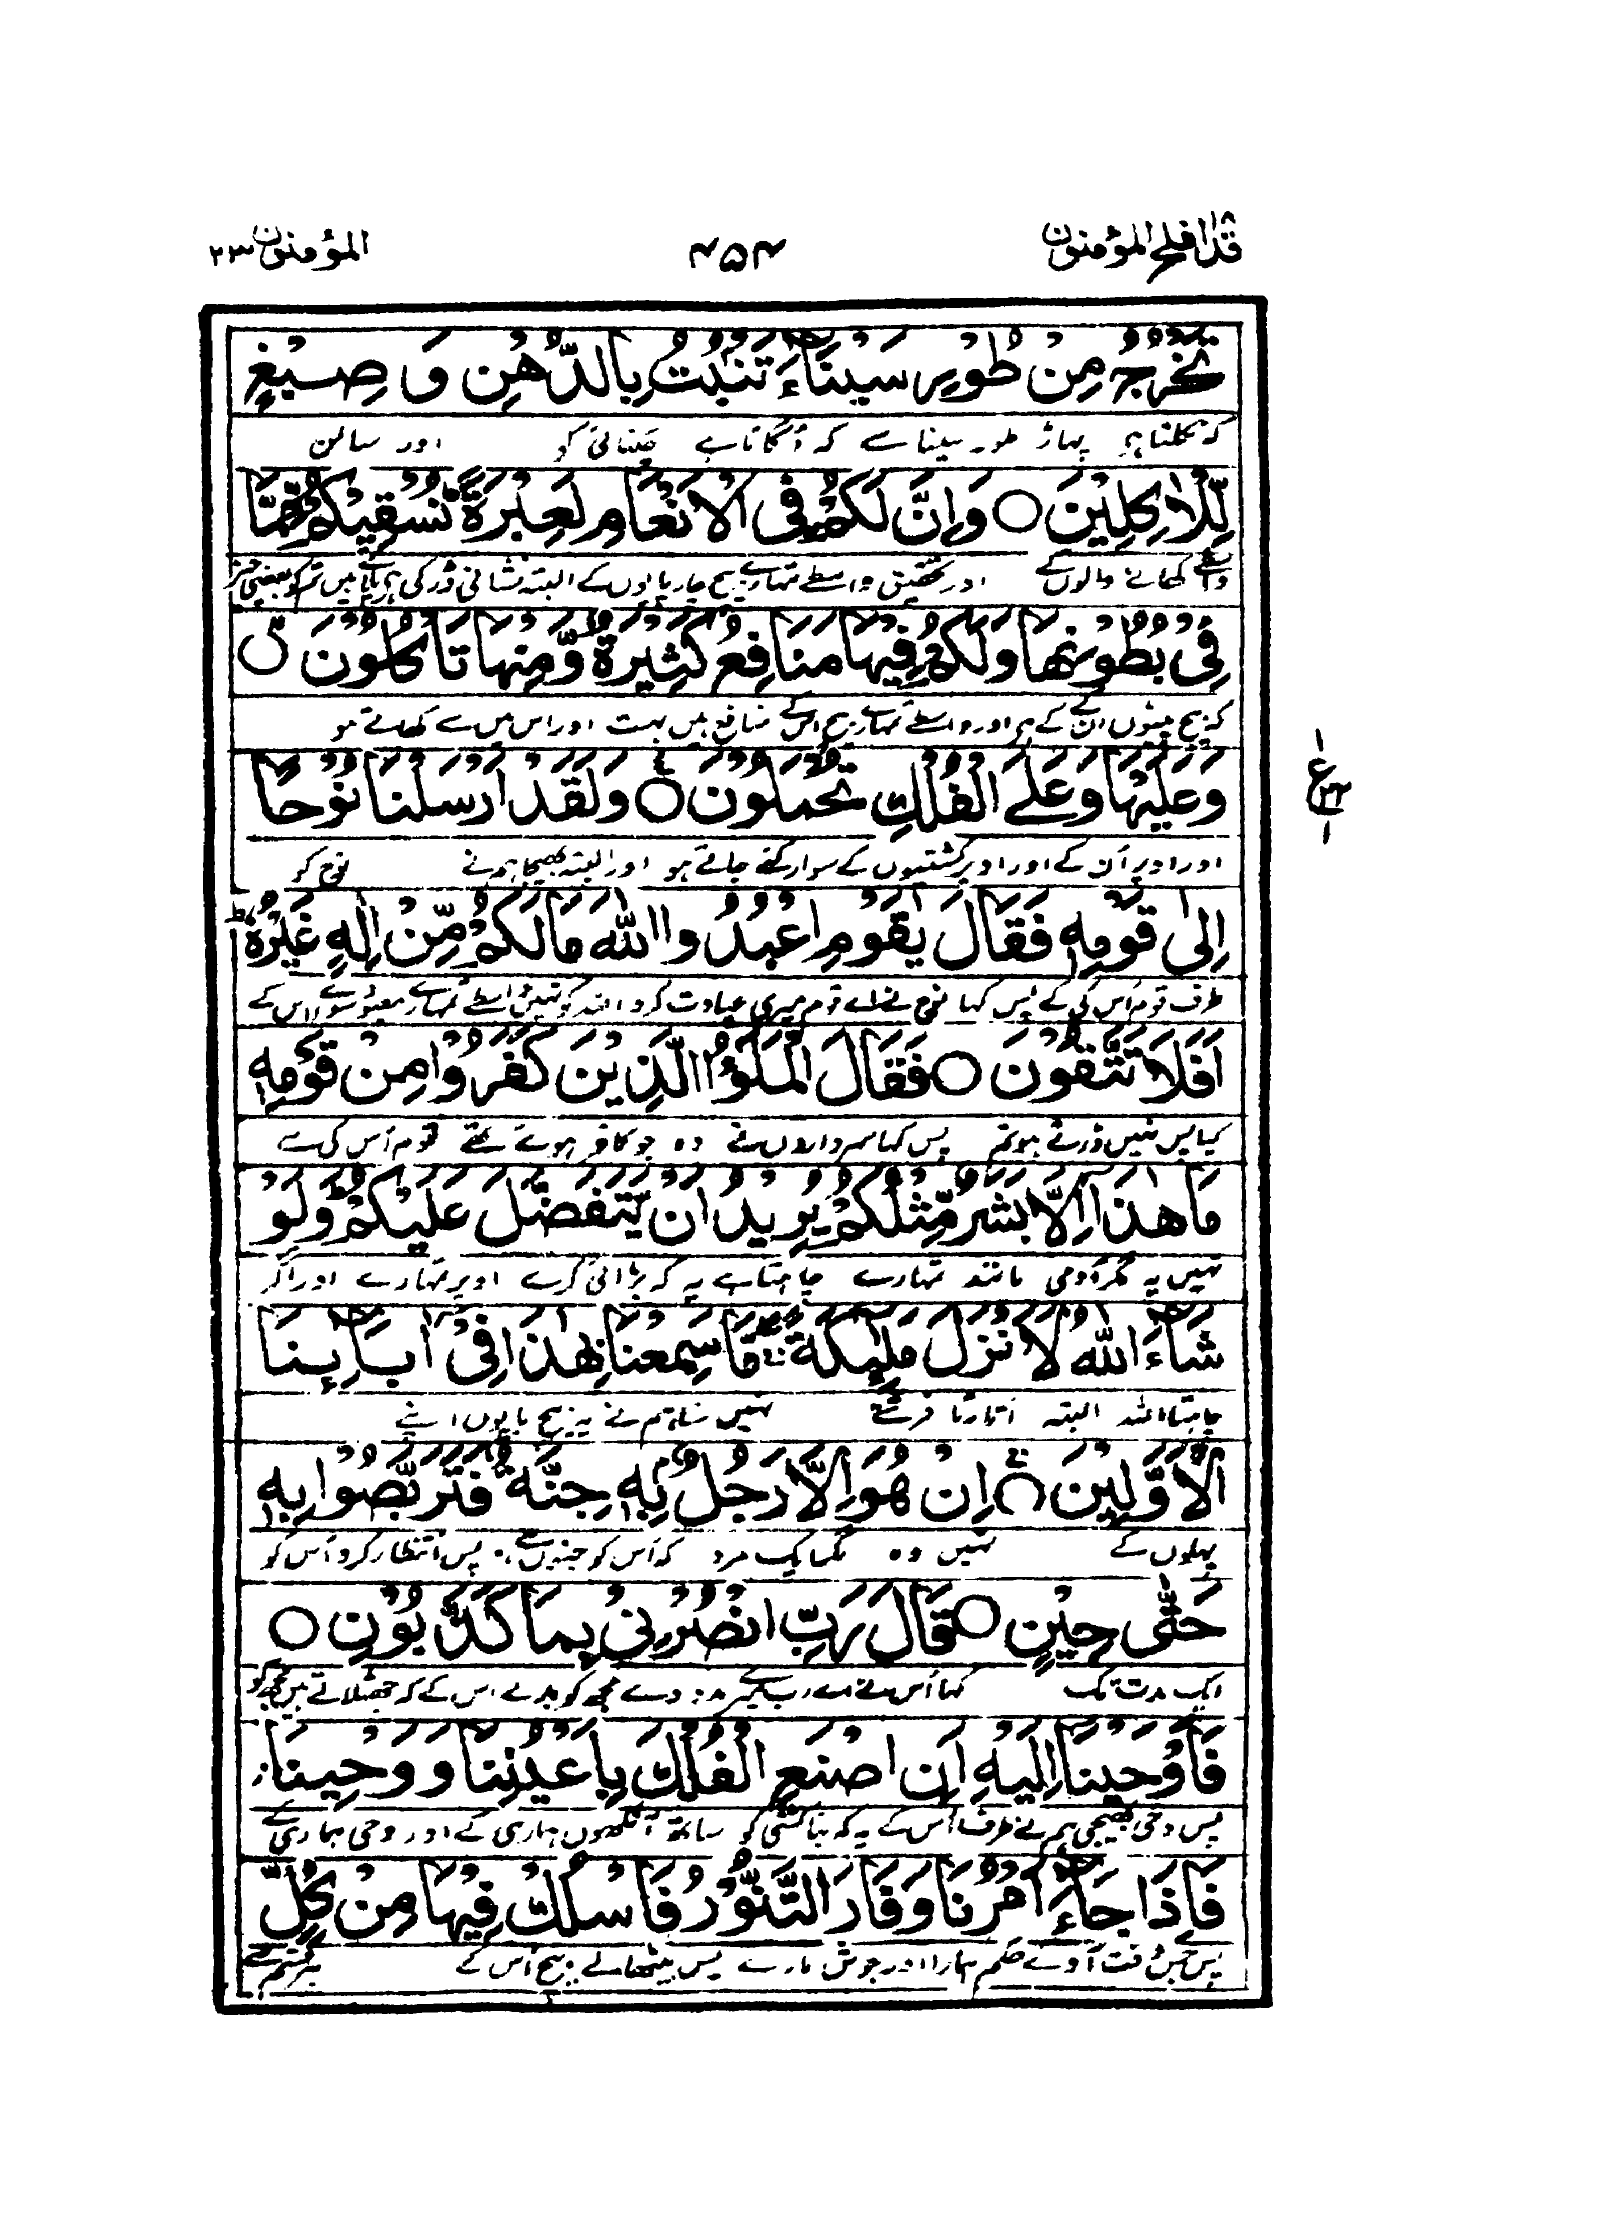 قد افلح ١٨
۴۵۴
المؤمنون ٢٣
تَخْرُجُ مِنْ طُوْرِ سَيْنَآءَ تَنْۢبُتُ بِالدُّهْنِ وَ صِبْغٍ
کہ نکلتا ہے پہاڑ طور سینا سے کہ اُگاتا ہے چکنائی کو اور سالن
لِّلْاٰكِلِيْنَ ○ وَاِنَّ لَكُمْ فِى الْاَنْعَامِ لَعِبْرَةً ؕ نُسْقِيْكُمْ مِّمَّا
واسطے کھانے والوں کے اور تحقیق واسطے تمہارے بیچ چارپاؤں کے البتہ نشانی ڈر کی ہے پلاتے ہیں تم کو بعضی چیز
فِىْ بُطُوْنِهَا وَلَكُمْ فِيْهَا مَنَافِعُ كَثِيْرَةٌ وَّمِنْهَا تَاْكُلُوْنَ ○
کہ بیچ پیٹوں ان کے ہے اور واسطے تمہارے بیچ اس کے منافع ہیں بہت اور اس میں سے کھاتے ہو
وَعَلَيْهَا وَعَلَى الْفُلْكِ تُحْمَلُوْنَ ○ وَلَقَدْ اَرْسَلْنَا نُوْحًا
اور اوپر اُن کے اور اوپر کشتیوں کے سوار کئے جاتے ہو اور البتہ بھیجا ہم نے نوح کو
اِلٰى قَوْمِهٖ فَقَالَ يٰقَوْمِ اعْبُدُوا اللّٰهَ مَا لَكُمْ مِّنْ اِلٰهٍ غَيْرُهٗ ؕ
طرف قوم اُس کی کے پس کہا نوح نے اے قوم میری عبادت کرو اللہ کو نہیں واسطے تمہارے معبود سوائے اس کے
اَفَلَا تَتَّقُوْنَ ○ فَقَالَ الْمَلَؤُا الَّذِيْنَ كَفَرُوْا مِنْ قَوْمِهٖ
کیا پس نہیں ڈرتے ہو تم پس کہا سرداروں نے وہ جو کافر ہوئے تھے قوم اُس کی سے
مَا هٰذَاۤ اِلَّا بَشَرٌ مِّثْلُكُمْ يُرِيْدُ اَنْ يَّتَفَضَّلَ عَلَيْكُمْ ؕ وَلَوْ
نہیں یہ مگر آدمی مانند تمہارے چاہتا ہے یہ کہ بڑائی کرے اوپر تمہارے اور اگر
شَآءَ اللّٰهُ لَاَنْزَلَ مَلٰٓئِكَةً ۖ مَّا سَمِعْنَا بِهٰذَا فِىْۤ اٰبَآئِنَا
چاہتا اللہ البتہ اُتارتا فرشتے نہیں سنا ہم نے یہ بیچ باپوں اپنے
الْاَوَّلِيْنَ ○ اِنْ هُوَ اِلَّا رَجُلٌۢ بِهٖ جِنَّةٌ فَتَرَبَّصُوْا بِهٖ
پہلوں کے نہیں وہ مگر ایک مرد کہ اُس کو جنون ہے پس انتظار کرو اُس کو
حَتّٰى حِيْنٍ ○ قَالَ رَبِّ انْصُرْنِىْ بِمَا كَذَّبُوْنِ ○
ایک مدت تک کہا اُس نے اے رب میرے مدد دے مجھ کو بدلے اس کے کہ جھٹلاتے ہیں مجھ کو
فَاَوْحَيْنَاۤ اِلَيْهِ اَنِ اصْنَعِ الْفُلْكَ بِاَعْيُنِنَا وَوَحْيِنَا
پس وحی بھیجی ہم نے طرف اُس کے یہ کہ بنا کشتی کو ساتھ آنکھوں ہماری کے اور وحی ہماری کے
فَاِذَا جَآءَ اَمْرُنَا وَفَارَ التَّنُّوْرُ فَاسْلُكْ فِيْهَا مِنْ كُلٍّ
پس جس وقت آوے حکم ہمارا اور جوش مارے پس بیٹھا لے بیچ اُس کے ہر قسم سے
ع